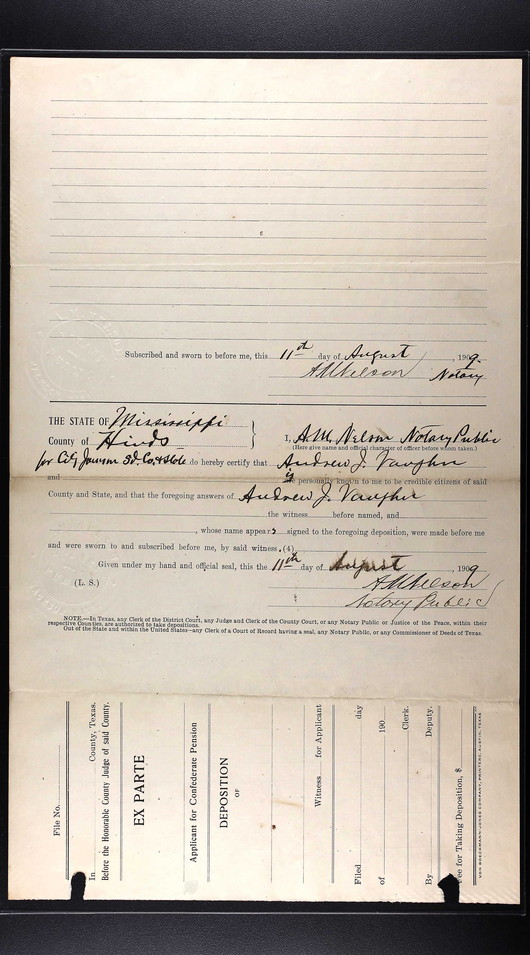 Subscribed and sworn to before me, this 11th day of August, 1909.
A.M. Nelson Notary
THE STATE OF Mississippi
County of Hinds
I, A.M. Nelson Notary Public
(Here give name and official character of officer before whom taken.)
for City Co. & State do hereby certify that Andrew J. Vaughn
and is personally known to me to be credible citizens of said
County and State, and that the foregoing answers of Andrew J. Vaughn
the witness before named, and
, whose name appears signed to the foregoing deposition, were made before me
and were sworn to and subscribed before me, by said witness. (4)
Given under my hand and official seal, this the 11th day of August, 1909
(L. S.)
A.M. Nelson
Notary Public
NOTE.—In Texas, any Clerk of the District Court, any Judge and Clerk of the County Court, or any Notary Public or Justice of the Peace, within their
respective Counties, are authorized to take depositions.
Out of the State and within the United States—any Clerk of a Court of Record having a seal, any Notary Public, or any Commissioner of Deeds of Texas.
File No.
In County, Texas.
Before the Honorable County Judge of said County.
EX PARTE
Applicant for Confederate Pension
DEPOSITION
OF
Witness for Applicant
Filed day
of 190
Clerk.
By Deputy.
Fee for Taking Deposition, $
VON BOECKMANN-JONES COMPANY, PRINTERS, AUSTIN, TEXAS